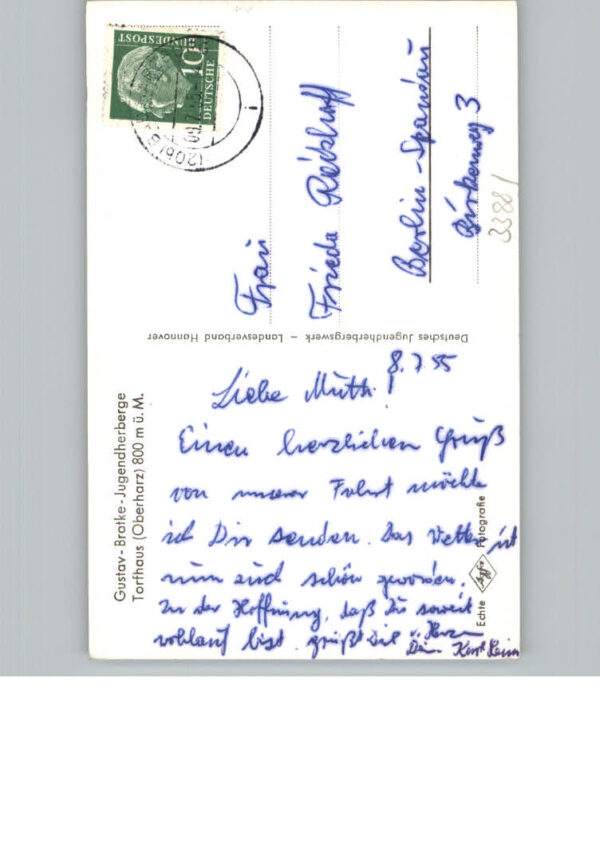 Gustav-Bratke-Jugendherberge
Torfhaus (Oberharz) 800 m ü. M.
8.7.55
Liebe Mutti!
Einen herzlichen Gruß
von unserer Fahrt möchte
ich Dir senden. Das Wetter ist
nun auch schön geworden.
In der Hoffnung, daß Du soweit
wohlauf bist, grüßt Dich v. Herzen
Dein
Echte Agfa Fotografie
Deutsches Jugendherbergswerk – Landesverband Hannover
DEUTSCHE
BUNDESPOST
10
Frau
Frieda
Berlin-Spandau
Birkenweg 3
3388/